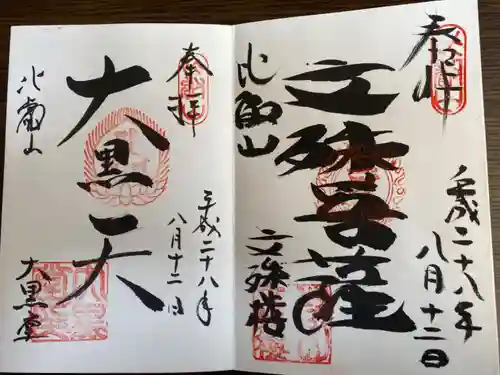 平成二十八年
八月十二日
文殊菩薩
比叡山
文殊楼
奉拝
平成二十八年
八月十二日
大黒天
比叡山
大黒堂